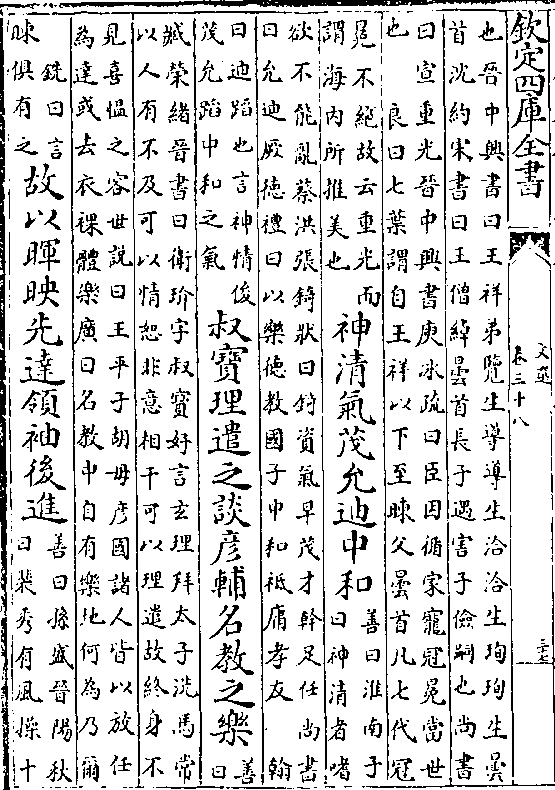 欽定四庫全書
文選
卷三十八
也晉中興書曰王祥弟覽生導導生洽洽生珣珣生曇
首沈約宋書曰王僧綽曇首長子遇害子儉嗣也尚書
曰宣重光晉中興書庾冰疏曰臣因循家寵冠冕當世
也 良曰七葉謂自王祥以下至暕父曇首凡七代冠
冕不絕故云重光而
謂海内所推美也
神清氣茂允迪中和
善曰淮南子
曰神清者嗜
欲不能亂蔡洪張錡狀曰錡資氣早茂才幹足任尚書
曰允迪厥德禮曰以樂德教國子中和祗庸孝友 翰
曰迪蹈也言神情俊
茂允蹈中和之氣
叔寶理遣之談彦輔名教之樂
善
曰
臧榮緒晉書曰衛玠字叔寶好言玄理拜太子洗馬常
以人有不及可以情恕非意相干可以理遣故終身不
見喜慍之容世説曰王平子胡毋彦國諸人皆以放任
為達或去衣裸體樂廣曰名教中自有樂地何為乃爾
銑曰言
暕俱有之
故以暉映先達領袖後進
善曰孫盛晉陽秋
曰裴秀有風操十